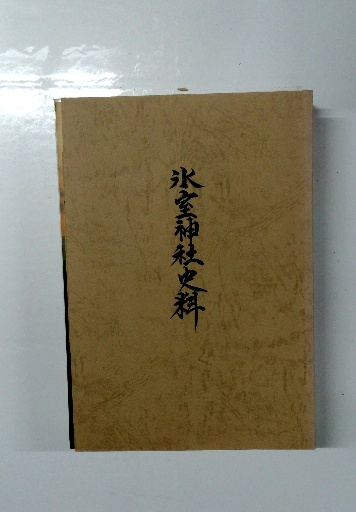 氷室神社史料